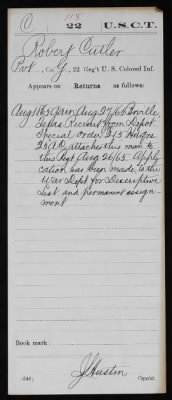 C 118 22 U.S.C.T.
Robert Cutler
Pvt, Co. G, 22 Reg't U. S. Colored Inf.
Appears on Returns as follows:
Aug 1865 Gain Aug 27/65 Bville,
Texas Recruit from Depot
Special Order 215 Hdqrs
25 A.C. attaches this man to
this Regt Aug 26/65. Appli
cation has been made to the
War Dept for Descriptive
List and permanent assign
ment
Book mark:
J Huston
(546) Copyist.